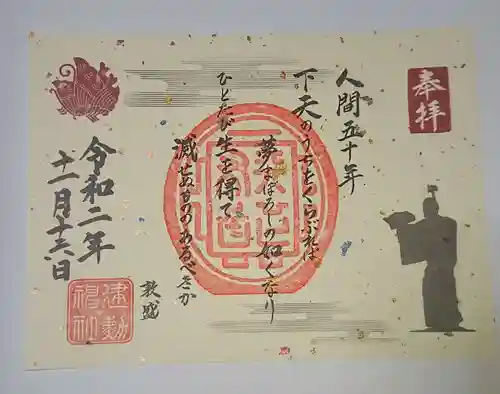 奉拝
人間五十年
下天のうちをくらぶれば
夢まぼろしの如くなり
ひとたび生を得て
滅せぬもののあるべきか
敦盛
令和二年
十一月十六日
建勲神社